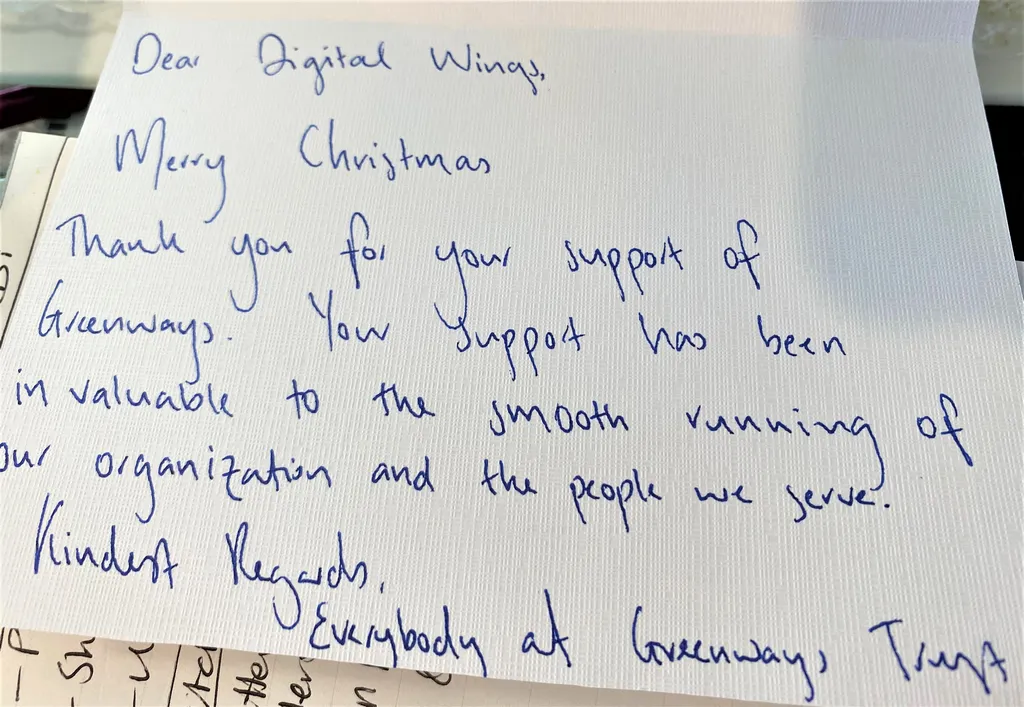 Dear Digital Wings,
Merry Christmas
Thank you for your support of
Greenways. Your support has been
invaluable to the smooth running of
our organization and the people we serve.
Kindest Regards,
Everybody at Greenways Trust